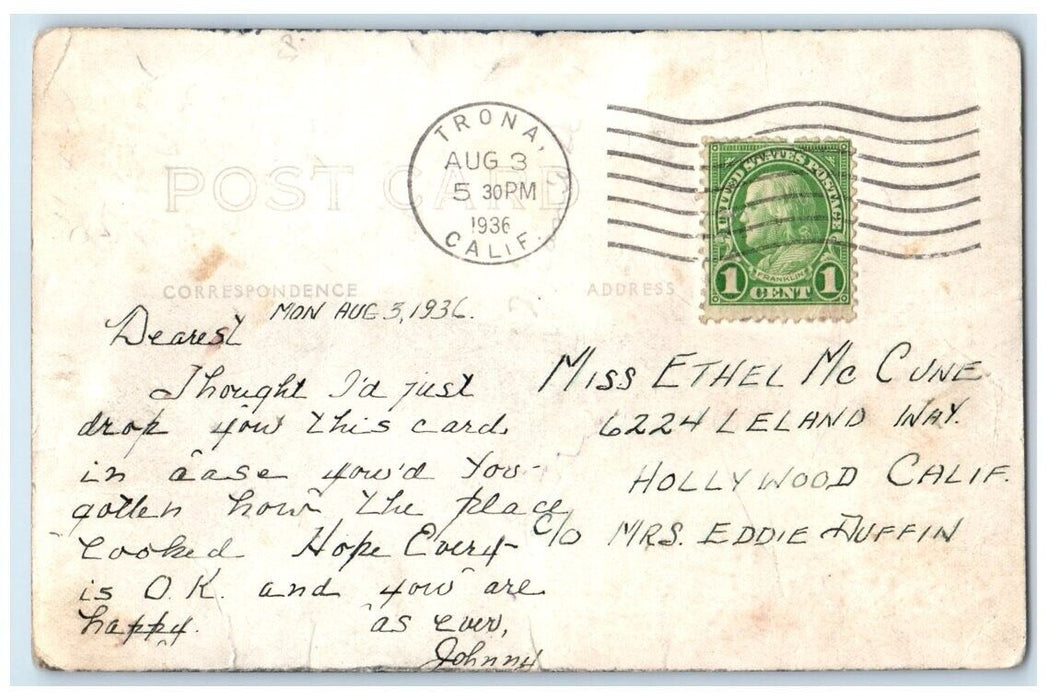 TRONA,
AUG 3
5 30PM
1936
CALIF.
UNITED STATES POSTAGE
FRANKLIN
1 CENT 1
POST CARD
CORRESPONDENCE
ADDRESS
MON AUG 3, 1936.
Dearest
Thought I'd just
drop you this card
in case you'd for-
gotten how the place
looked Hope Every-
is O.K. and you are
happy.
as ever,
Johnny
MISS ETHEL Mc CUNE
6224 LELAND WAY.
HOLLYWOOD CALIF.
C/O MRS. EDDIE DUFFIN